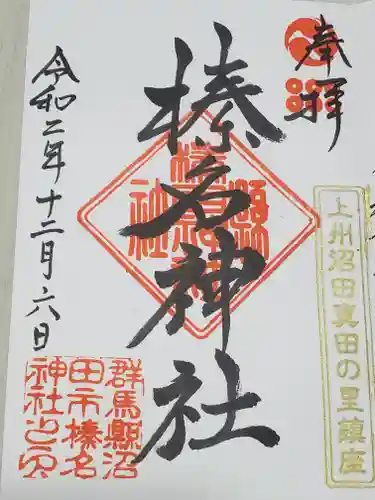 奉拝
上州沼田真田の里鎮座
榛名神社
令和二年十二月六日
群馬縣沼
田市榛名
神社之印